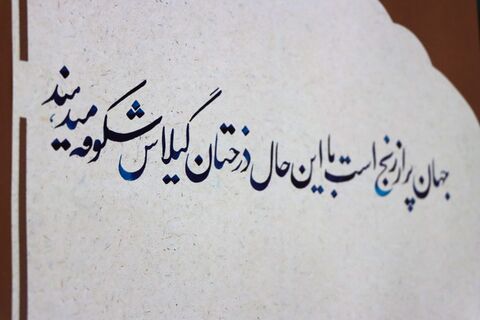 جهان پر از رنج است با این حال درختان گیلاس شکوفه میدهند